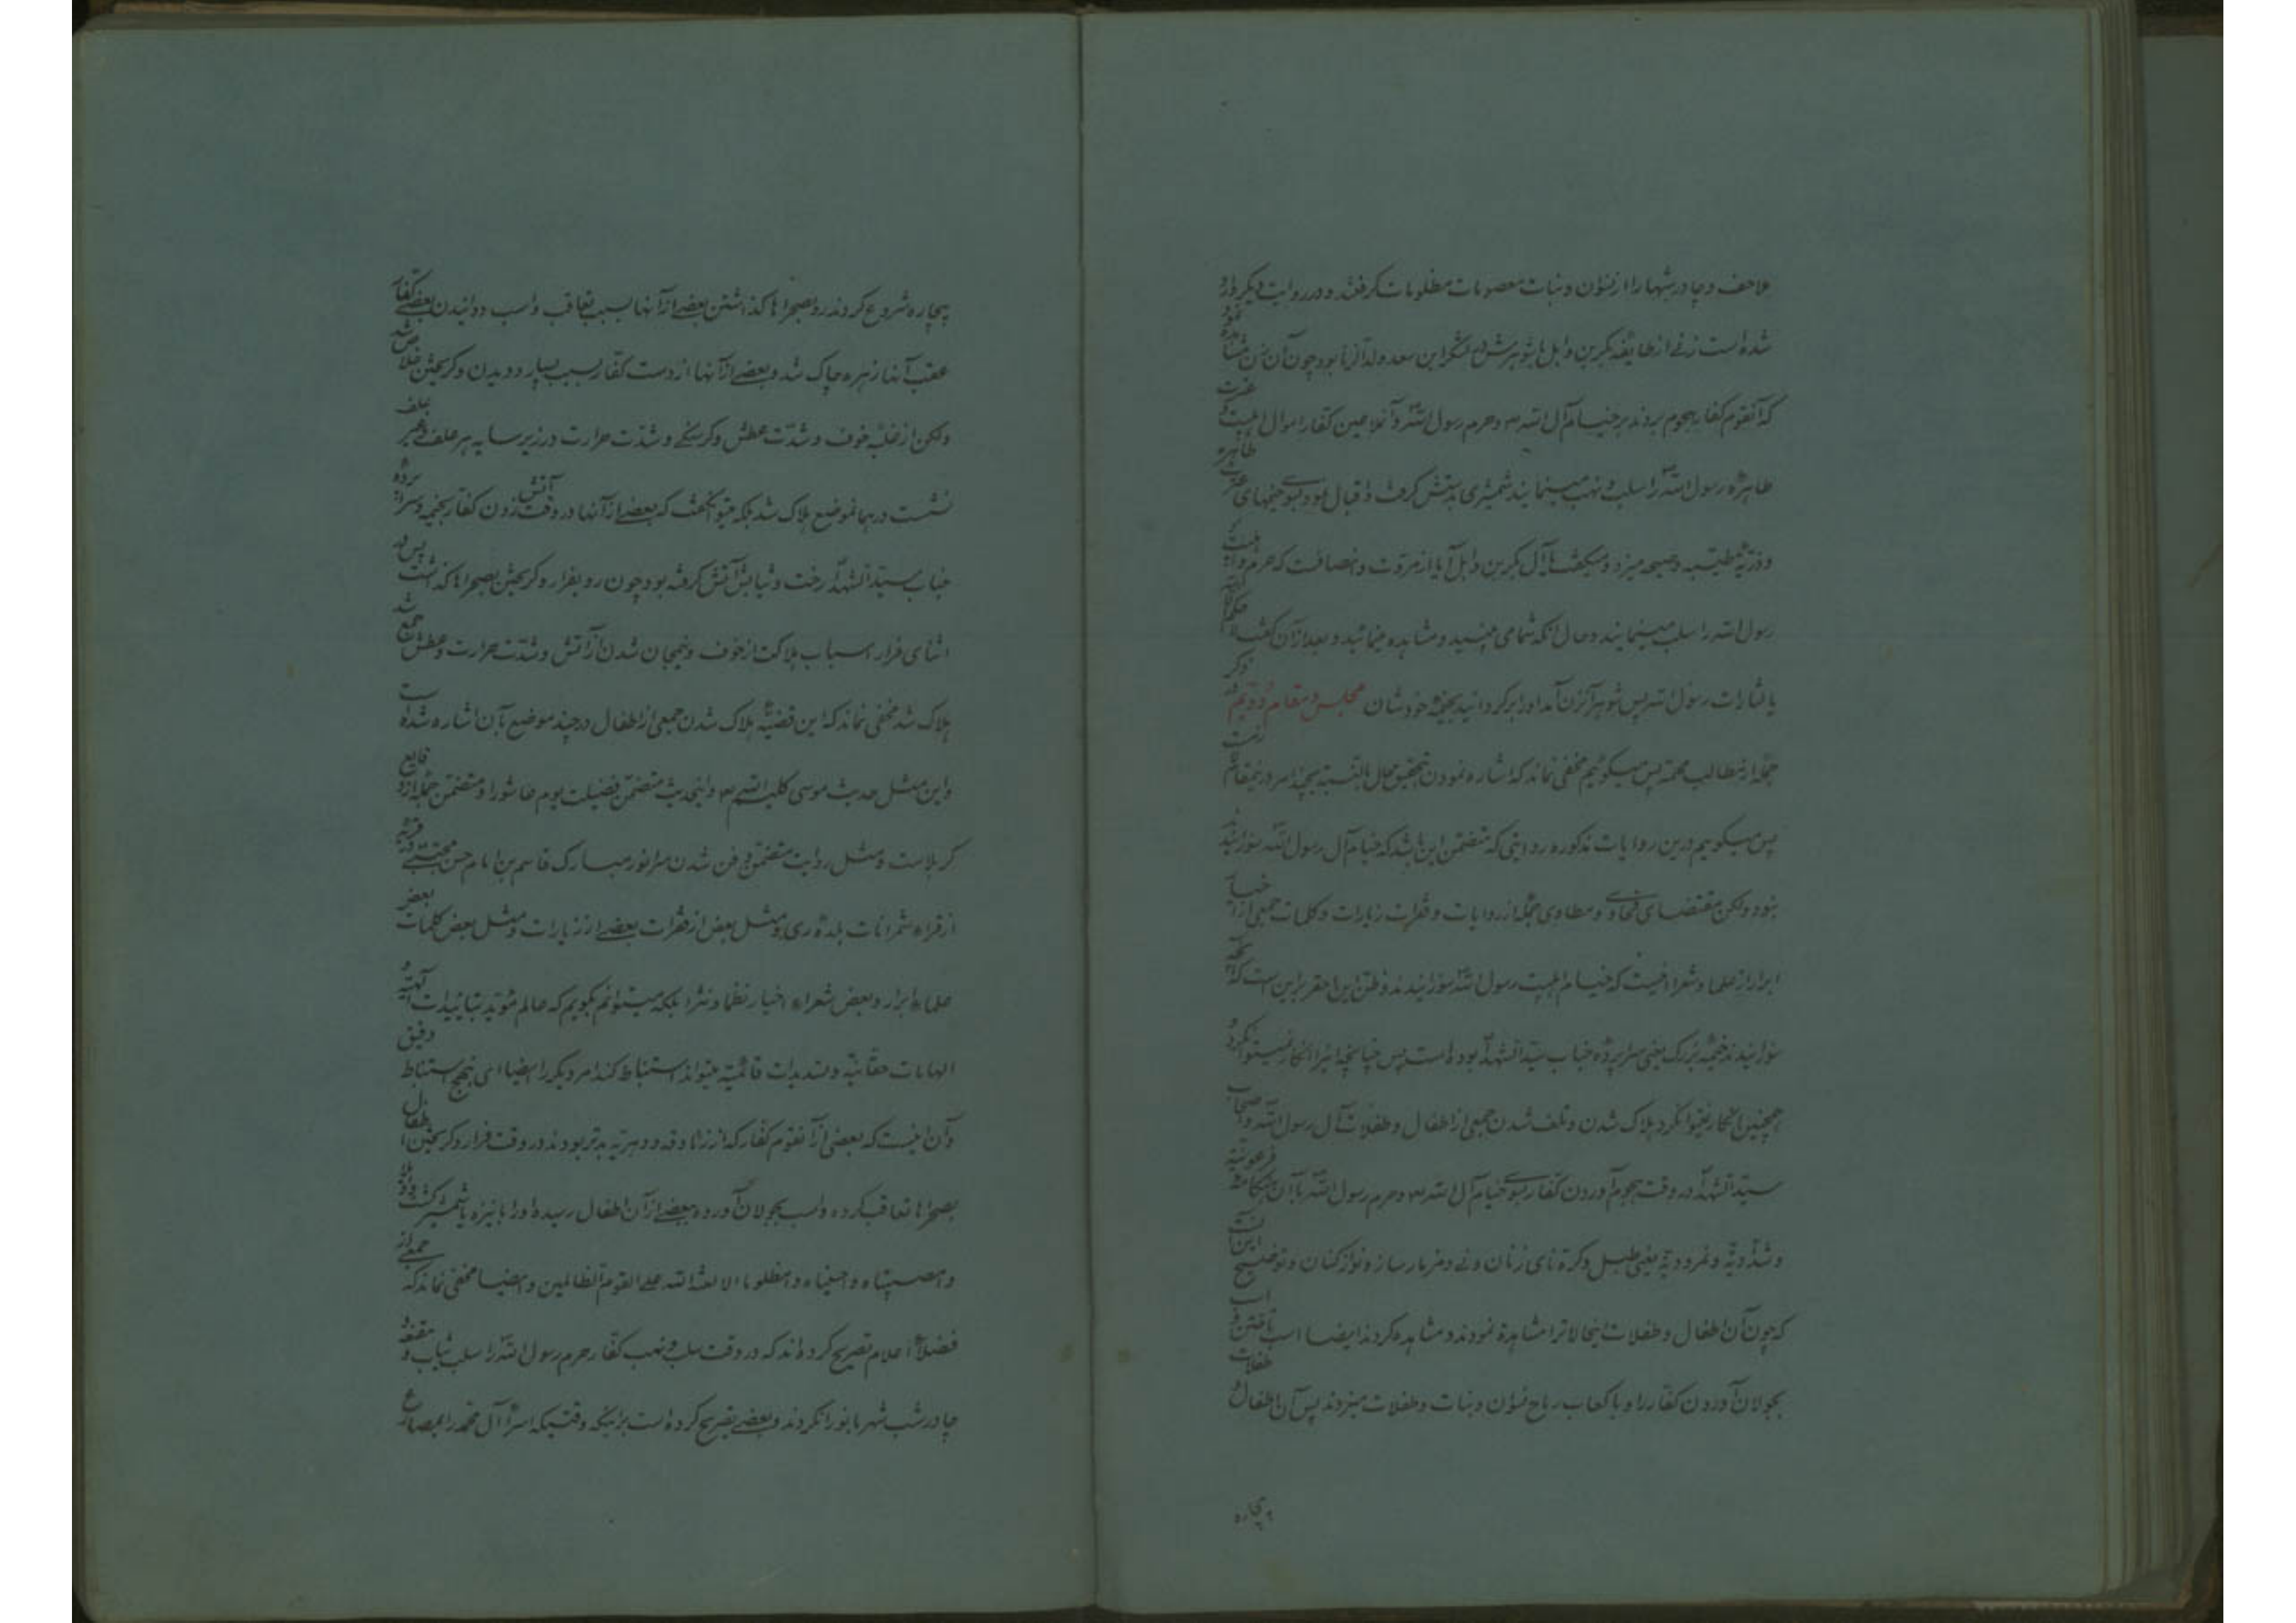 ملاحف و چادر شبها را از نسوان و بنات معصومات مظلومات گرفتند و در روایت دیگر وارد
شده است زنی از طایفه بکر بن وایل با شوهرش در لشکر ابن سعد ولد الزنا بود چون آن زن مشاهده نمود
که آنقوم کفار هجوم بردند بر خیام آل الله و حرم رسول الله و آنملاعین کفار اموال اهلبیت و عترت
طاهره رسول الله را سلب و نهب مینمایند شمشیری بدستش گرفت و اقبال نمود بسوی خیمهای عترت طاهره
و ذریّه طیّبه و صیحه میزد و میگفت یا آل بکر بن وایل آیا از مروّت و انصافست که حرم و اهلبیت
رسول الله را سلب مینمایند و حال آنکه شما می بینید و مشاهده مینمائید و بعد از آن گفت لا حکم الا لله
یا لثارات رسول الله پس شوهر آنزن آمد او را برگردانید بخیمه خودشان مجلس و مقام دویّم در ذکر
جمله از مطالب مهمّه پس میگوئیم مخفی نماند که اشاره نمودن بتحقیق حال بالنسبة بچند امر در اینمقام
پس میگویم در این روایات مذکوره روایتی که متضمن این باشد که خیام آل رسول الله سوزانیدند
نبود ولکن مقتضای فحاوی و مطاوی جمله از روایات و فقرات زیارات و کلمات جمعی از اخیار
ابرار از علما و شعرا اینست که خیام اهلبیت رسول الله سوزانیدند و ظنّ این احقر بر این است که آنچه
سوزانیدند خیمه بزرگ یعنی سراپرده جناب سیّد الشهداء بوده است پس چنانچه اینرا انکار نمیتوان کرد و
همچنین انکار نمیتوان کرد هلاک شدن و تلف شدن جمعی از اطفال و طفلات آل رسول الله و اصحاب
سیّد الشهداء در وقت هجوم آوردن کفار بسوی خیام آل الله و حرم رسول الله با آن هنگامه فرعونیّه
و شدّادیّة و نمرودیّة یعنی طبل و کرّه نای زنان و نی و مزمار ساز و نواز کنان و توضیح این آنست
که چون آن اطفال و طفلات اینحالاترا مشاهدة نمودند و مشاهده کردند ایضا اسب تاختن و
بجولان آوردن کفار را و با کعاب رماح نسوان و بنات و طفلات میزدند پس آن اطفال و طفلات
بیچاره
بیچاره شروع کردند رو بصحرا ها گذاشتن بعضی از آنها بسبب تعاقب و اسب دوانیدن بعضی کفار
عقب آنها زهره چاک شد و بعضی از آنها از دست کفار بسبب بسیار دویدن و گریختن خلاص شد
ولکن از غلبه خوف و شدّت عطش و گرسنگی و شدّت حرارت در زیر سایه هر علف
نشست در همانموضع هلاک شد بلکه میتوان گفت که بعضی از آنها در وقت آتش زدن کفار بخیمه و سراپرده
جناب سیّد الشهداء رخت و ثیابش آتش گرفته بود چون رو بفرار و گریختن بصحراها گذاشت پس در
اثنای فرار اسباب هلاکت از خوف و هیجان شدن آن آتش و شدّت حرارت و عطش جمع شد
هلاک شد مخفی نماند که این قضیّه هلاک شدن جمعی از اطفال در چند موضع بآن اشاره شده است
و این مثل حدیث موسی کلیم الله و اینحدیث متضمّن فضیلت یوم عاشورا و متضمّن جمله از وقایع
کربلاست و مثل روایت متضمّن دفن شدن سر انور مبارک قاسم بن امام حسن مجتبی در قریه
از قراء شمرانات بلده ری و مثل بعض از فقرات بعضی از زیارات و مثل بعض کلمات بعض
علماء ابرار و بعض شعراء اخیار نظما و نثرا بلکه میتوانم بگویم که عالم مؤیّد بتاییدات الهیّه و
الهامات حقانیّه و تسدیدات قائمیّه میتواند استنباط کند امر دیگر را ایضا ای بنهج استنباط دقیق
و آن اینست که بعضی از آنقوم کفار که از زنادقه و دهریّه بدتر بودند در وقت فرار و گریختن اطفال
بصحراها تعاقب کرده و اسب بجولان آورده ببعضی از آن اطفال رسیده او را با نیزه یا شمشیر کشت
وامصیبتاه واحسیناه وامظلوما الا لعنة الله علی القوم الظالمین و ایضا مخفی نماند که جمعی از
فضلاء اعلام تصریح کرده اند که در وقت سلب و نهب کفار حرم رسول الله را سلب ثیاب و مقنعه و
چادر شب شهربانو را نکردند و بعضی تصریح کرده است بر اینکه وقتیکه اسراء آل محمّد را بمصارع